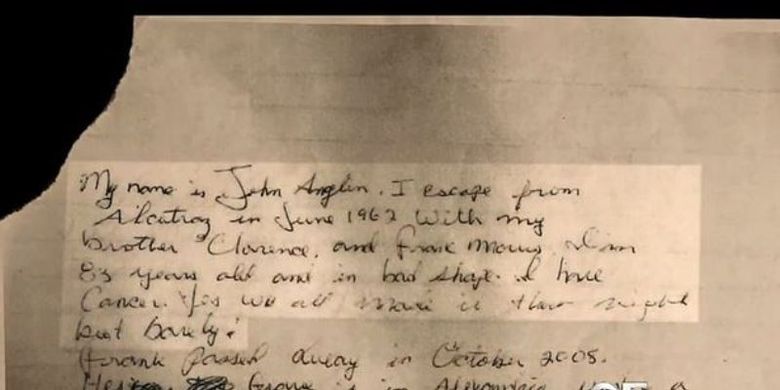 My name is John Anglin. I escape from
Alcatraz in June 1962 With my
brother Clarence, and Frank Morris. I'm
83 years old and in bad shape. I have
Cancer. Yes we all made it that night
but barely!
Frank passed away in October 2008.
His grave is in Alexandria